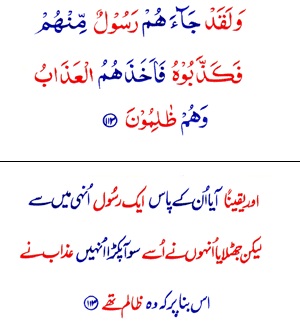 وَلَقَدْ جَآءَهُمْ رَسُوْلٌ مِّنْهُمْ
فَكَذَّبُوْهُ فَاَخَذَهُمُ الْعَذَابُ
وَهُمْ ظٰلِمُوْنَ ﴿۱۱۳﴾
اور یقیناً آیا اُن کے پاس ایک رسُول اُنہی میں سے
لیکن جھٹلایا اُنہوں نے اُسے سو آپکڑا اُنہیں عذاب نے
اس بنا پر کہ وہ ظالم تھے ﴿۱۱۳﴾